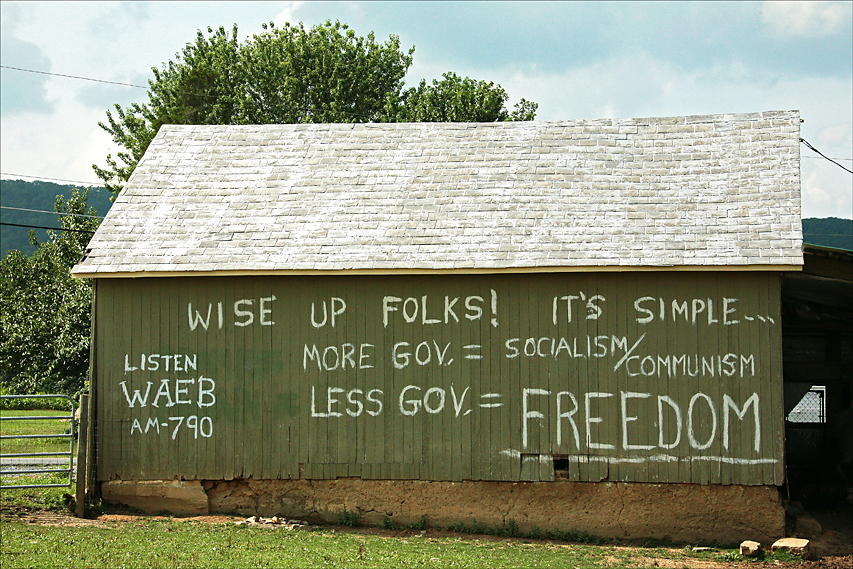 WISE UP FOLKS! IT'S SIMPLE...
MORE GOV. = SOCIALISM/COMMUNISM
LESS GOV. = FREEDOM
LISTEN
WAEB
AM-790